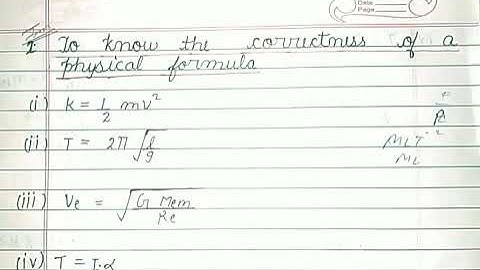 Date
Page
1 To know the correctness of a
physical formula
(i) k = 1/2 mv²
(ii) T = 2π √l/g
MLT⁻²
ML
(iii) Ve = √G Mem/Re
(iv) T = I·α